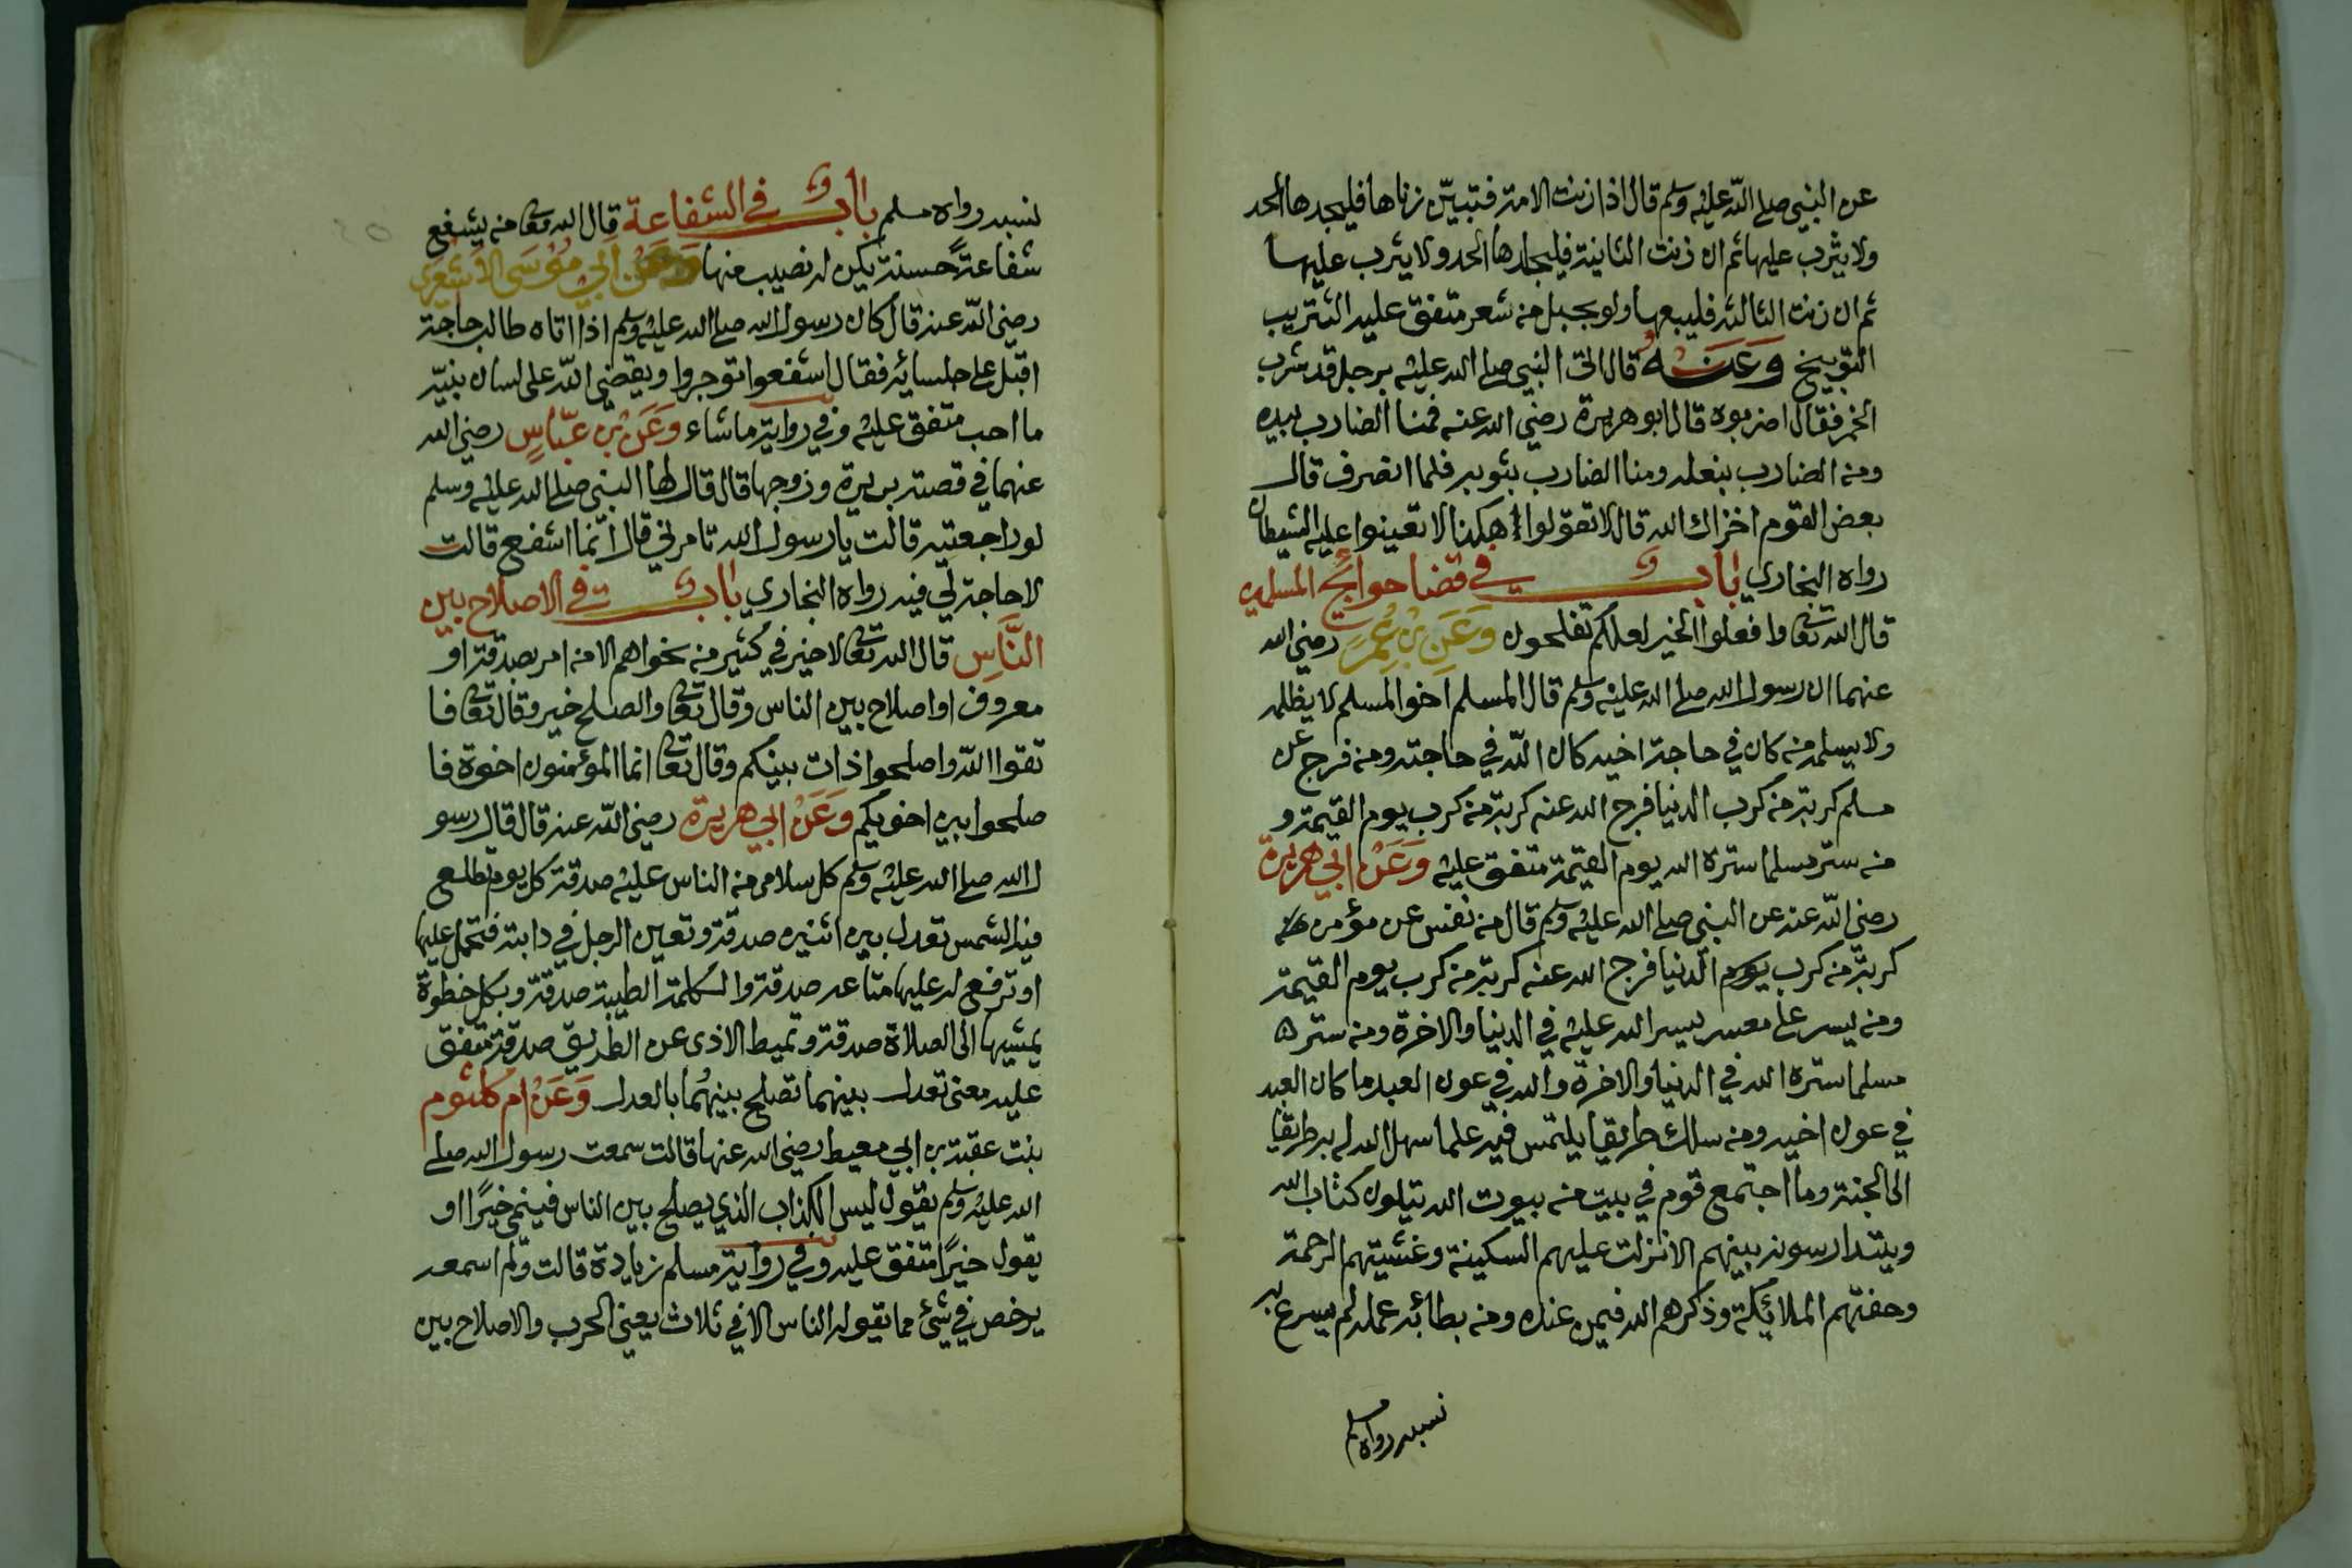 عن النبي صلى الله عليه وسلم قال اذا زنت الامة فتبيّن زناها فليجلدها الحد
ولا يثرب عليها ثم ان زنت الثانية فليجلدها الحد ولا يثرب عليها
ثم ان زنت الثالثة فليبعها ولو بحبل من شعر متفق عليه التثريب
التوبيخ وَعَنْهُ قال اتى النبي صلى الله عليه برجل قد شرب
الخمر فقال اضربوه قال ابو هريرة رضي الله عنه فمنا الضارب بيده
ومنا الضارب بنعله ومنا الضارب بثوبه فلما انصرف قال
بعض القوم اخزاك الله قال لا تقولوا هكذا لا تعينوا عليه الشيطان
رواه البخاري باب في قضا حوائج المسلمين
قال الله تعا وافعلوا الخير لعلكم تفلحون وَعَنِ بْنِ عُمَرَ رضي الله
عنهما ان رسول الله صلى الله عليه وسلم قال المسلم اخو المسلم لا يظلمه
ولا يسلمه من كان في حاجة اخيه كان الله في حاجته ومن فرج عن
مسلم كربة من كرب الدنيا فرج الله عنه كربة من كرب يوم القيمة و
من ستر مسلما ستره الله يوم القيمة متفق عليه وَعَنْ ابي هريرة
رضي الله عنه عن النبي صلى الله عليه وسلم قال من نفس عن مؤمن
كربة من كرب يوم الدنيا فرج الله عنه كربة من كرب يوم القيمة
ومن يسر على معسر يسر الله عليه في الدنيا والاخرة ومن ستر ه
مسلما ستره الله في الدنيا والاخرة والله في عون العبد ما كان العبد
في عون اخيه ومن سلك طريقا يلتمس فيه علما سهل الله له به طريقا
الى الجنة وما اجتمع قوم في بيت من بيوت الله يتلون كتاب الله
ويتدارسونه بينهم الا نزلت عليهم السكينة وغشيتهم الرحمة
وحفتهم الملائكة وذكرهم الله فيمن عنده ومن بطا به عمله لم يسرع به
نسبه رواه مسلم
نسبه رواه مسلم باب في الشفاعة قال الله تعا من يشفع
شفاعةً حسنة يكن له نصيب منها وَعَنْ ابي مُوسَى الاشعري
رضي الله عنه قال كان رسول الله صلى الله عليه وسلم اذا اتاه طالب حاجة
اقبل على جلسائه فقال اشفعوا توجروا ويقضي الله على لسان نبيه
ما احب متفق عليه وفي رواية ما شاء وَعَنْ بْنِ عبّاسٍ رضي الله
عنهما في قصة بريرة وزوجها قال قال لها النبي صلى الله عليه وسلم
لو راجعتيه قالت يا رسول الله تامرني قال انّما اشفع قالت
لا حاجة لي فيه رواه البخاري باب في الاصلاح بين
النَّاسِ قال الله تعا لا خير في كثير من نجواهم الا من امر بصدقة او
معروف او اصلاح بين الناس وقال تعا والصلح خير وقال تعا فا
تقوا الله واصلحوا ذات بينكم وقال تعا انما المؤمنون اخوة فا
صلحوا بين اخويكم وَعَنْ ابي هريرة رضي الله عنه قال قال رسو
ل الله صلى الله عليه وسلم كل سلامى من الناس عليه صدقة كل يوم تطلع
فيه الشمس تعدل بين اثنين صدقة وتعين الرجل في دابته فتحمل عليها
او ترفع له عليها متاعه صدقة والكلمة الطيبة صدقة وبكل خطوة
تمشيها الى الصلاة صدقة وتميط الاذى عن الطريق صدقة متفق
عليه معنى تعدل بينهما تصلح بينهُما بالعدل وَعَنْ ام كلثوم
بنت عقبة بن ابي معيط رضي الله عنها قالت سمعت رسول الله صلى
الله عليه وسلم يقول ليس الكذاب الذي يصلح بين الناس فينمى خيرًا او
يقول خيرًا متفق عليه وفي رواية مسلم زيادة قالت ولم اسمعه
يرخص في شيء مما تقوله الناس الا في ثلاث يعني الحرب والاصلاح بين